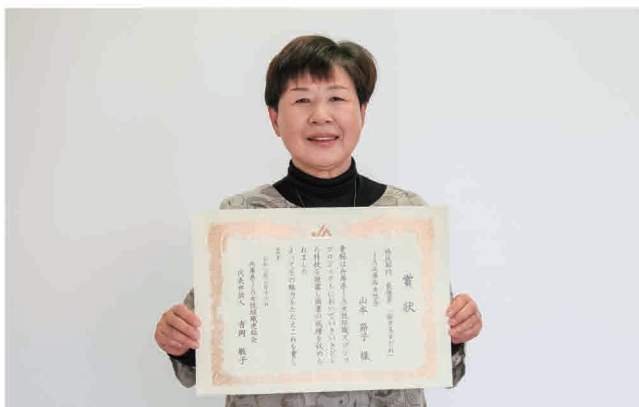 JA
賞状
特技部門 最優秀
JA兵庫西女性会
山本 節子 様
貴殿は兵庫県JA女性組織
プロジェクトにおいていきいきとし
た特技を披露し頭書の成績を収めら
れました
よってその魅力をたたえこれを賞し
ます
兵庫県JA女性組織連絡会
代表世話人 吉岡 敏子